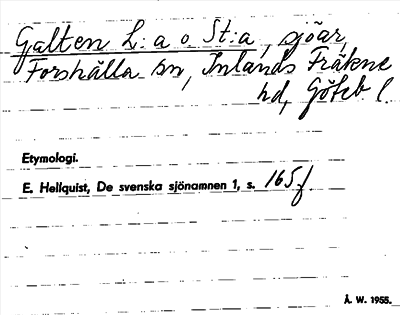 Galten L:a o. St:a, sjöar,
Forshälla sn, Inlands Fräkne
hd, Göteb l.
Etymologi.
E. Hellquist, De svenska sjönamnen 1, s. 165 f.
Å. W. 1955.